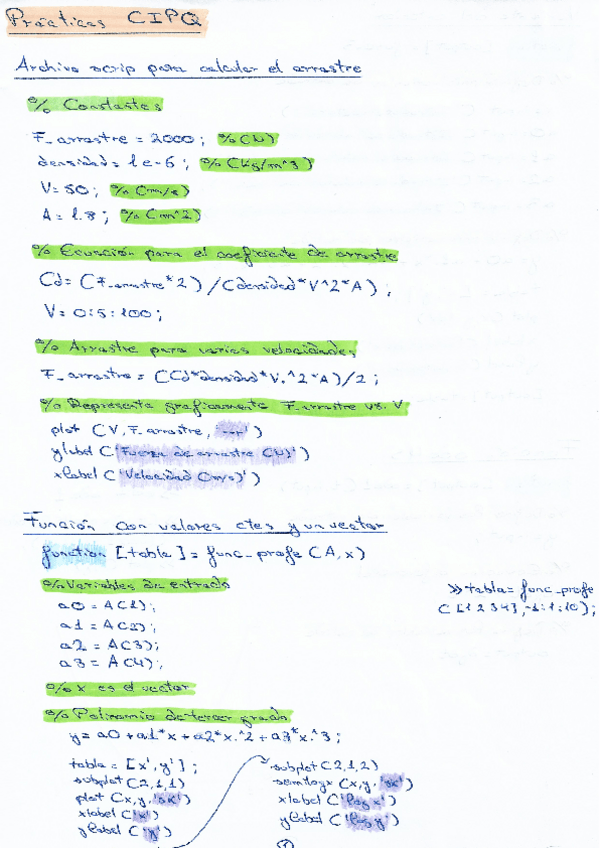 Prácticas CIPQ
Archivo scrip para calcular el arrastre
% Constantes
F_arrastre = 2000; %(N)
densidad = 1e-6; %(kg/m^3)
V = 50; %(m/s)
A = 1.8; %(m^2)
% Ecuación para el coeficiente de arrastre
Cd = (F_arrastre*2)/(densidad*V^2*A);
V = 0:5:100;
% Arrastre para varias velocidades
F_arrastre = (Cd*densidad*V.^2*A)/2;
% Representa graficamente F_arrastre vs. V
plot (V, F_arrastre, '---')
ylabel ('Fuerza de arrastre (N)')
xlabel ('Velocidad (m/s)')
Función con valores ctes y un vector
function [tabla] = func_profe (A, x)
% Variables de entrada
a0 = A(1);
a1 = A(2);
a2 = A(3);
a3 = A(4);
>> tabla = func_profe
([1 2 3 4], -1:1:10);
% x es el vector
% Polinomio de tercer grado
y = a0 + a1*x + a2*x.^2 + a3*x.^3;
tabla = [x', y'];
subplot (2,1,1)
plot (x, y, 'ok')
xlabel ('x')
ylabel ('y')
subplot (2,1,2)
semilogx (x, y, 'ok')
xlabel ('log x')
ylabel ('log y')
1